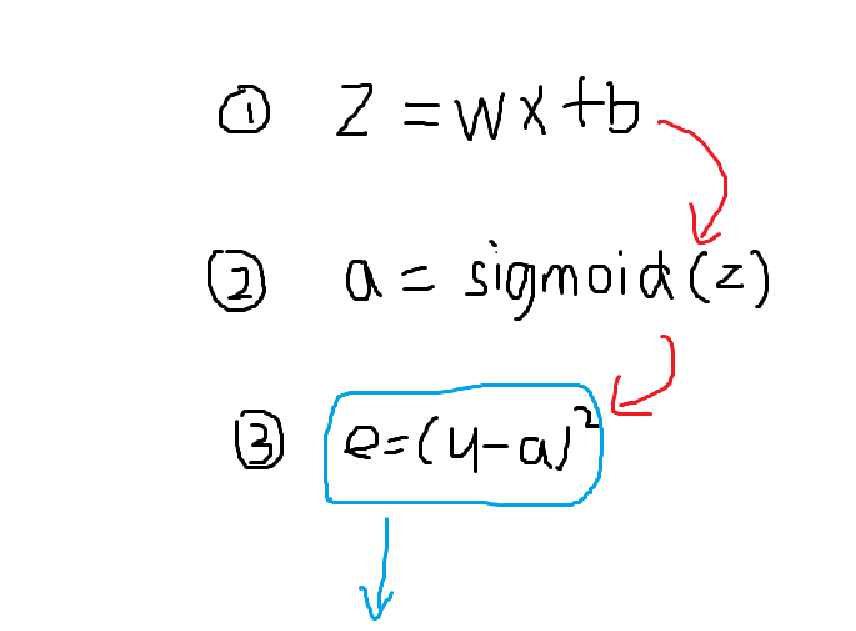 ① z = wx+b
② a = sigmoid(z)
③ e=(y-a)²